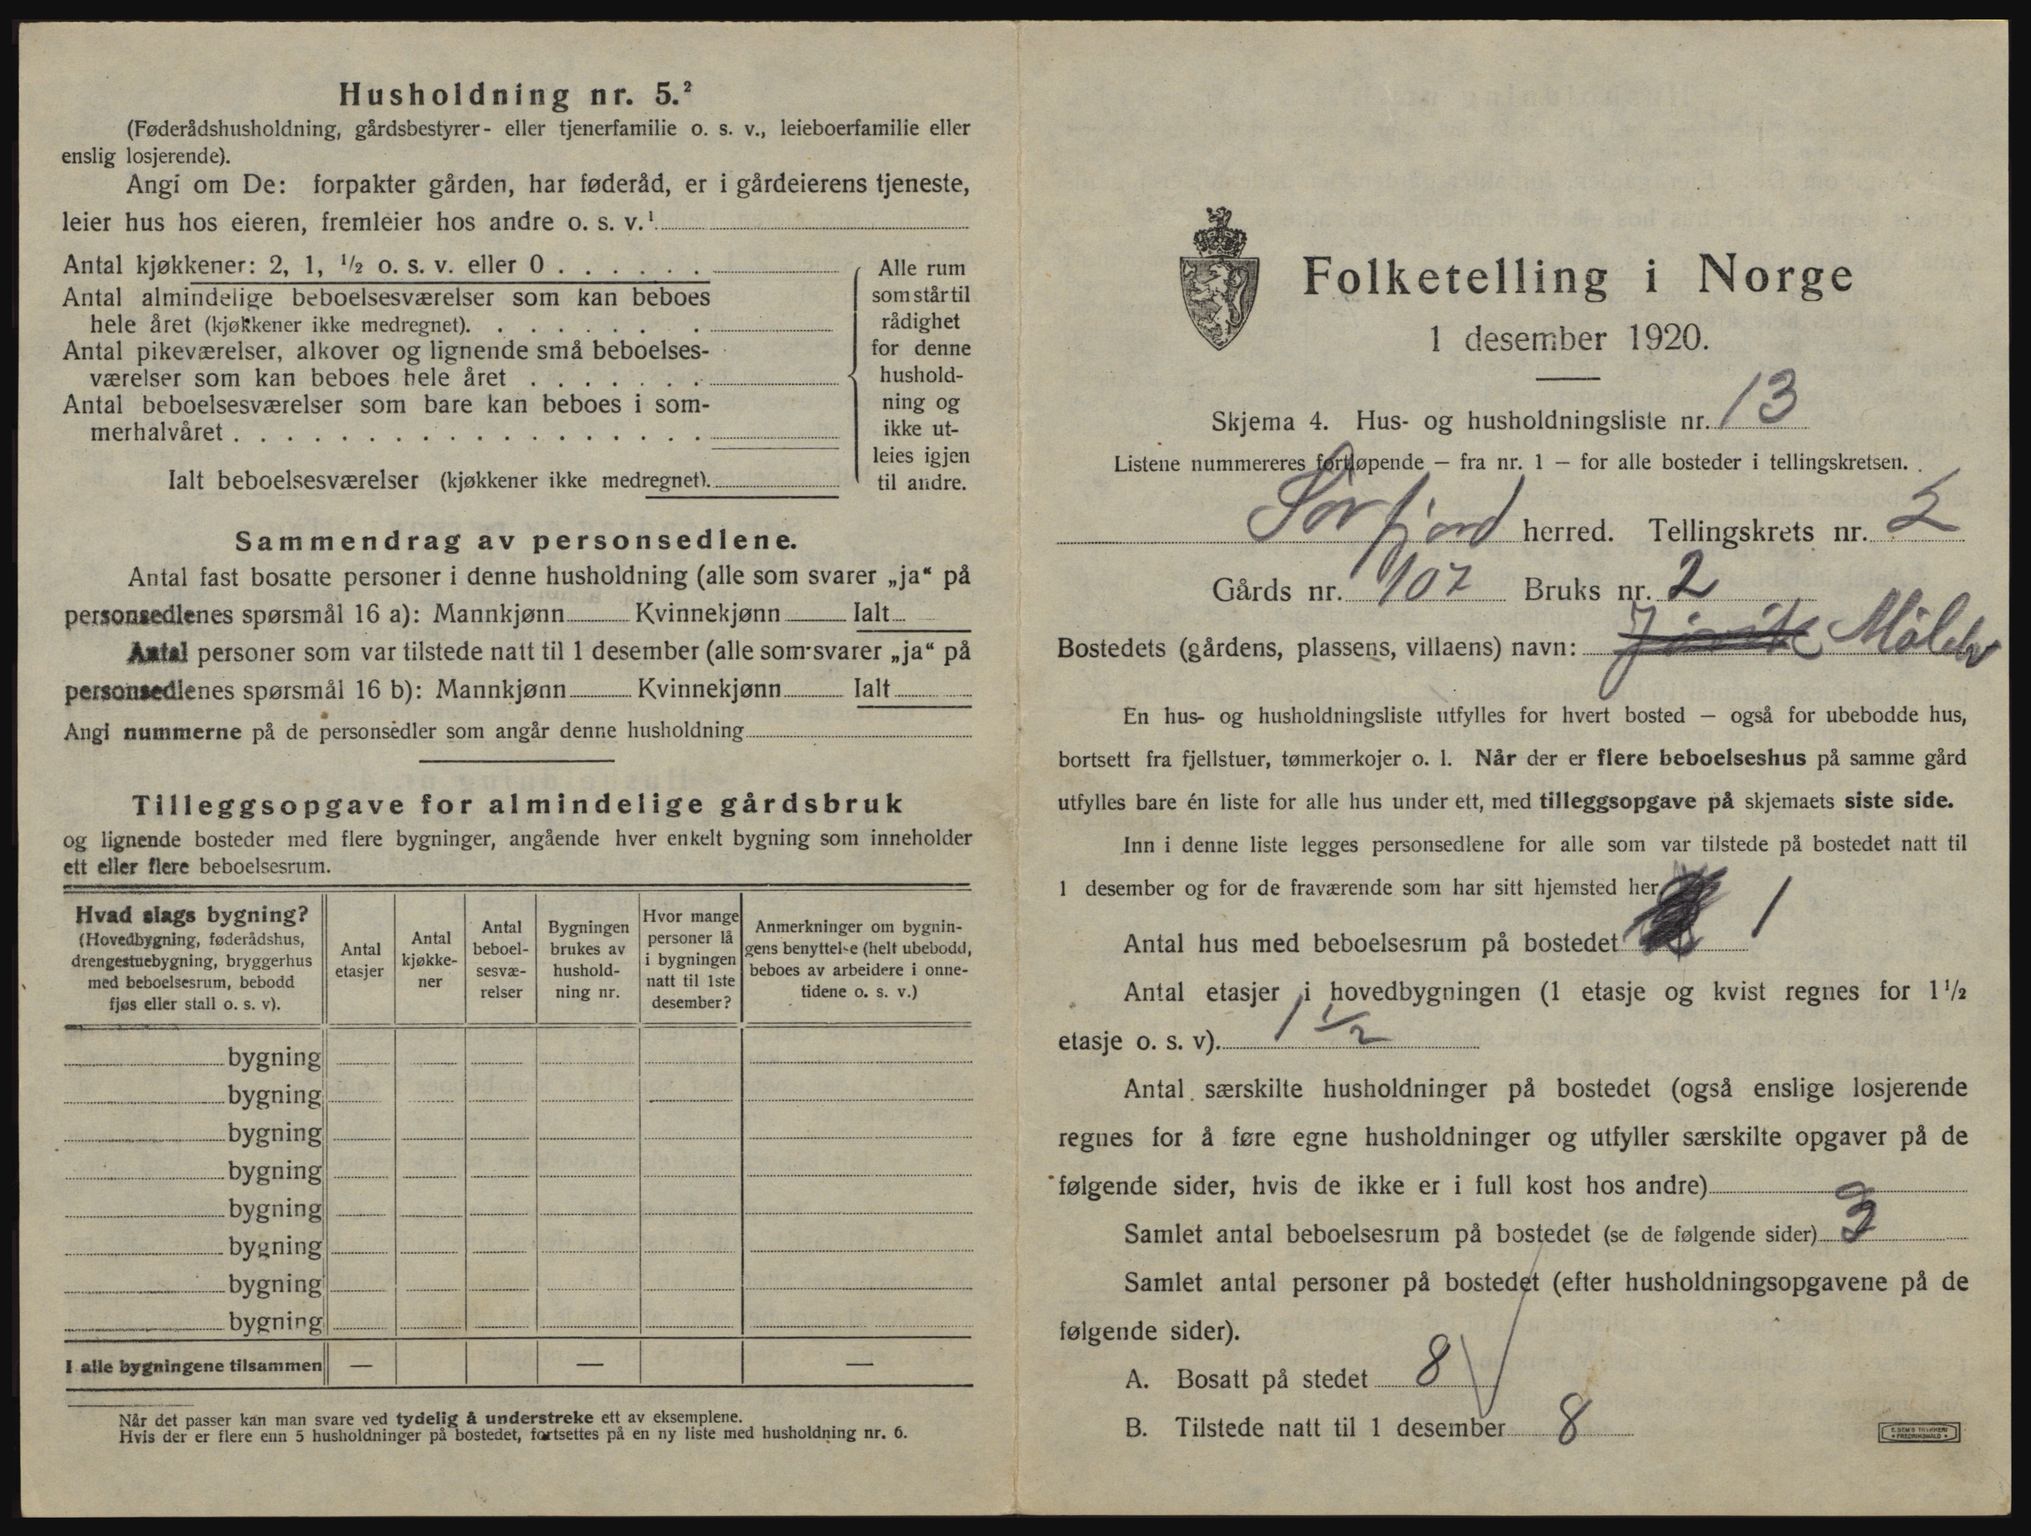 Husholdning nr. 5.²
(Føderådshusholdning, gårdsbestyrer- eller tjenerfamilie o. s. v., leieboerfamilie eller
enslig losjerende).
Angi om De: forpakter gården, har føderåd, er i gårdeierens tjeneste,
leier hus hos eieren, fremleier hos andre o. s. v.¹
Antal kjøkkener: 2, 1, ½ o. s. v. eller 0 . . . . . .
Antal almindelige beboelsesværelser som kan beboes
hele året (kjøkkener ikke medregnet). . . . . . . .
Antal pikeværelser, alkover og lignende små beboelses-
værelser som kan beboes hele året . . . . . . .
Antal beboelsesværelser som bare kan beboes i som-
merhalvåret . . . . . . . . . . . . . . . . . .
Ialt beboelsesværelser (kjøkkener ikke medregnet).
Alle rum
som står til
rådighet
for denne
hushold-
ning og
ikke ut-
leies igjen
til andre.
Sammendrag av personsedlene.
Antal fast bosatte personer i denne husholdning (alle som svarer „ja“ på
personsedlenes spørsmål 16 a): Mannkjønn Kvinnekjønn Ialt
Antal personer som var tilstede natt til 1 desember (alle som svarer „ja“ på
personsedlenes spørsmål 16 b): Mannkjønn Kvinnekjønn Ialt
Angi nummerne på de personsedler som angår denne husholdning
Tilleggsopgave for almindelige gårdsbruk
og lignende bosteder med flere bygninger, angående hver enkelt bygning som inneholder
ett eller flere beboelsesrum.
Hvad slags bygning?
(Hovedbygning, føderådshus,
drengestuebygning, bryggerhus
med beboelsesrum, bebodd
fjøs eller stall o. s. v).
Antal
etasjer
Antal
kjøkke-
ner
Antal
beboel-
sesvæ-
relser
Bygningen
brukes av
hushold-
ning nr.
Hvor mange
personer lå
i bygningen
natt til 1ste
desember?
Anmerkninger om bygnin-
gens benyttelse (helt ubebodd,
beboes av arbeidere i onne-
tidene o. s. v.)
bygning
bygning
bygning
bygning
bygning
bygning
bygning
bygning
I alle bygningene tilsammen — — —
Når det passer kan man svare ved tydelig å understreke ett av eksemplene.
Hvis der er flere enn 5 husholdninger på bostedet, fortsettes på en ny liste med husholdning nr. 6.
Folketelling i Norge
1 desember 1920.
Skjema 4. Hus- og husholdningsliste nr. 13
Listene nummereres fortløpende — fra nr. 1 — for alle bosteder i tellingskretsen.
Sørfjord herred. Tellingskrets nr. 5
Gårds nr. 107 Bruks nr. 2
Bostedets (gårdens, plassens, villaens) navn:
En hus- og husholdningsliste utfylles for hvert bosted — også for ubebodde hus,
bortsett fra fjellstuer, tømmerkojer o. l. Når der er flere beboelseshus på samme gård
utfylles bare én liste for alle hus under ett, med tilleggsopgave på skjemaets siste side.
Inn i denne liste legges personsedlene for alle som var tilstede på bostedet natt til
1 desember og for de fraværende som har sitt hjemsted her
Antal hus med beboelsesrum på bostedet 1
Antal etasjer i hovedbygningen (1 etasje og kvist regnes for 1½
etasje o. s. v). 1½
Antal særskilte husholdninger på bostedet (også enslige losjerende
regnes for å føre egne husholdninger og utfyller særskilte opgaver på de
følgende sider, hvis de ikke er i full kost hos andre)
Samlet antal beboelsesrum på bostedet (se de følgende sider) 3
Samlet antal personer på bostedet (efter husholdningsopgavene på de
følgende sider).
A. Bosatt på stedet 8
B. Tilstede natt til 1 desember 8